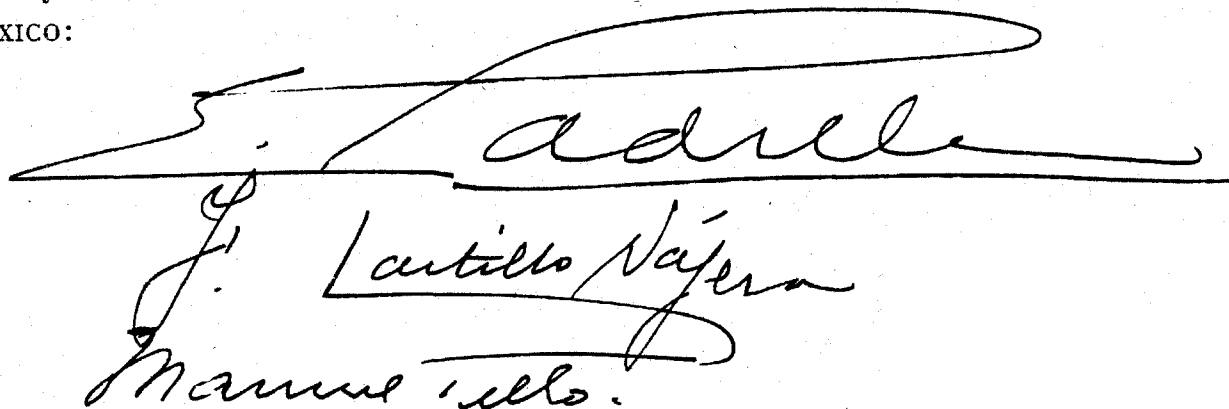 XICO:
E. Padilla
F. Castillo Nájera
Manuel Tello.